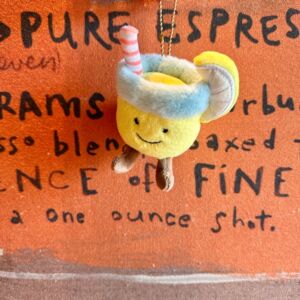 PURE ESPRES
even!
RAMS
sso blen axed
ENCE of FINE
a one ounce shot.